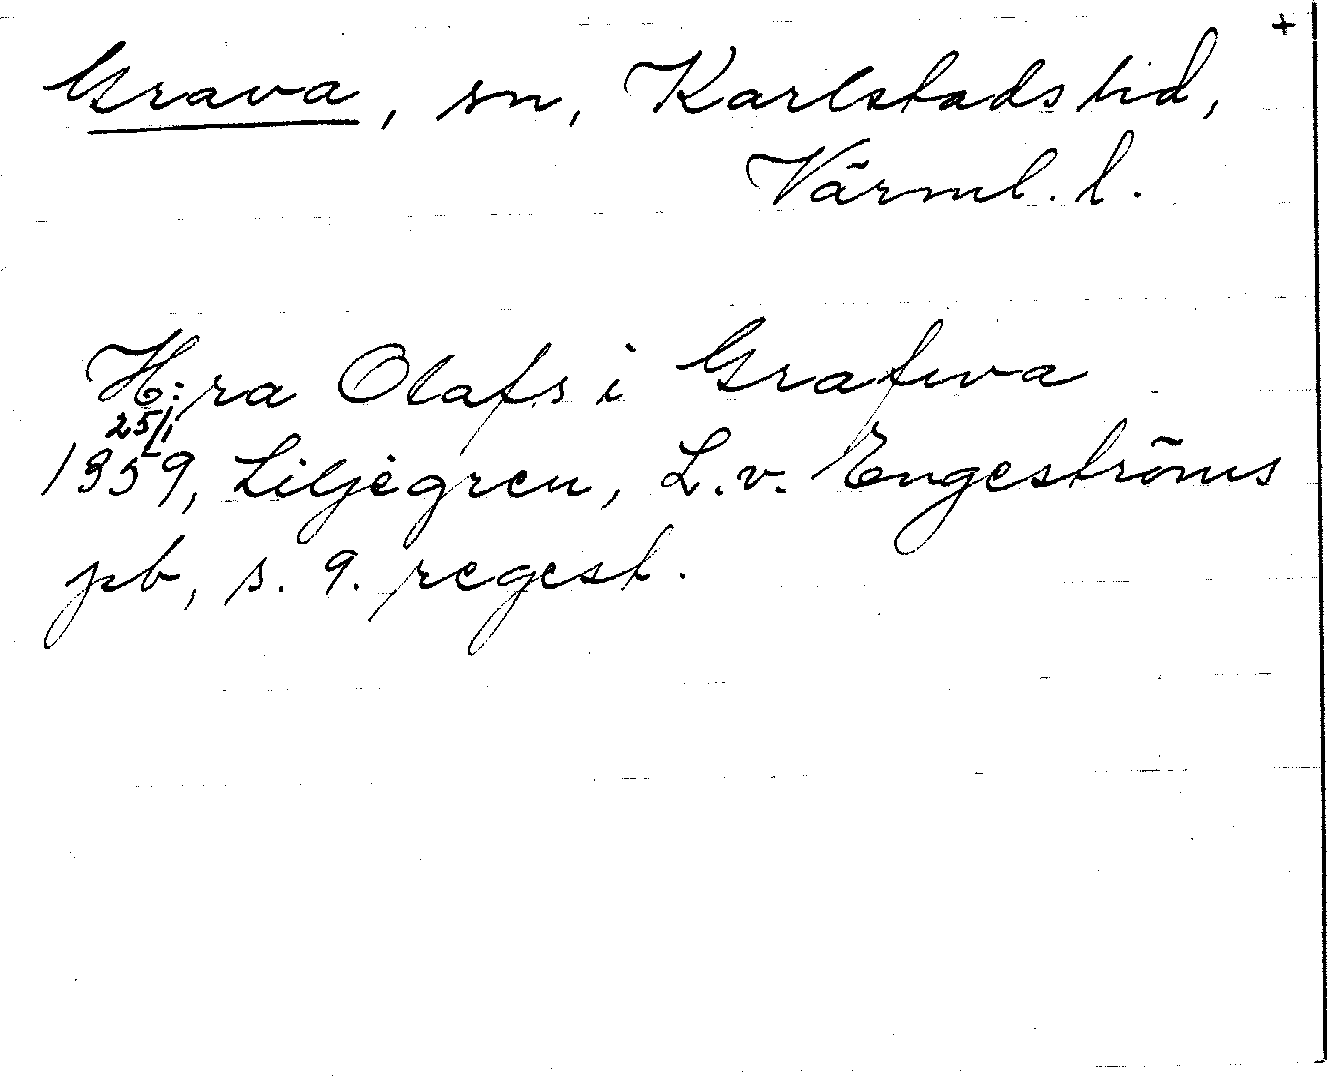 +
Grava, sn, Karlstads tid,
Värml. l.
H:ra Olafs i Grafwa
25/1
1359, Liljegren, L. v. Engeströms
pb, s. 9. regest.